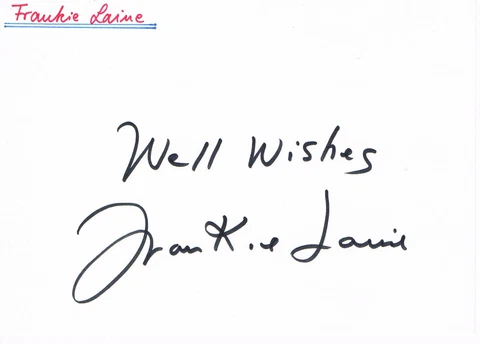 Frankie Laine
Well Wishes
Frankie Laine